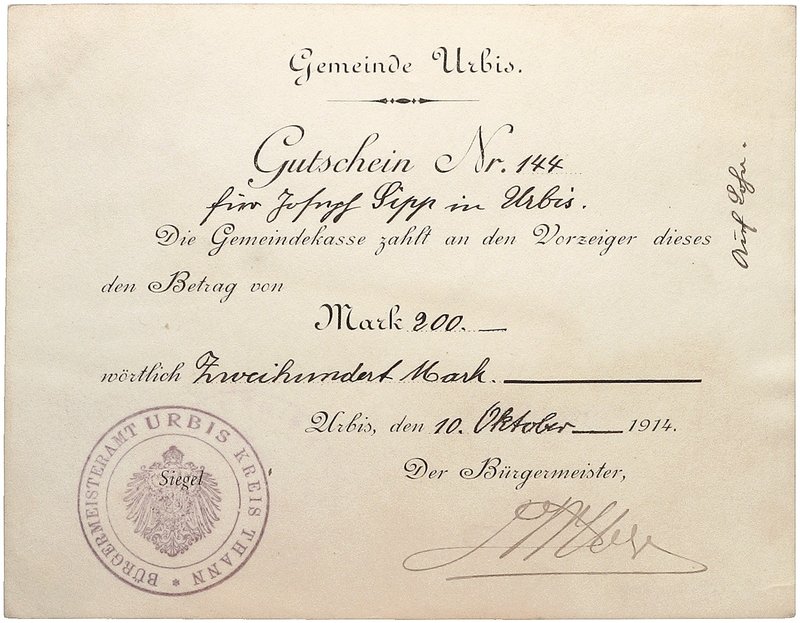 Gemeinde Urbis.
Gutschein Nr. 144
für Joseph Sipp in Urbis.
Die Gemeindekasse zahlt an den Vorzeiger dieses
den Betrag von
Mark 200.—
wörtlich Zweihundert Mark.
Urbis, den 10. Oktober 1914.
Der Bürgermeister,
BÜRGERMEISTERAMT URBIS KREIS THANN *
Siegel
Auf